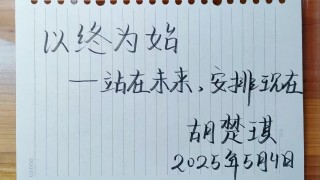 以终为始
——站在未来、安排现在
胡楚琪
2025年5月4日